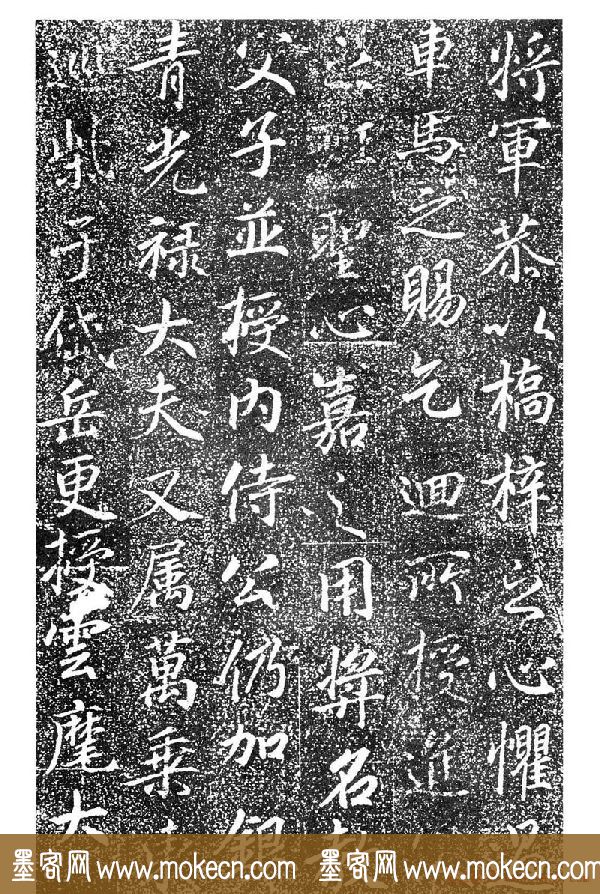 将軍恭以橋梓之心懼
車馬之賜乞迴所授進
之聖心嘉之用獎名
父子並授内侍公仍加銀
青光禄大夫又属萬乗
巡柴于岱岳更授雲麾大
墨客网 www.mokecn.com 墨客网 www.mokecn.com